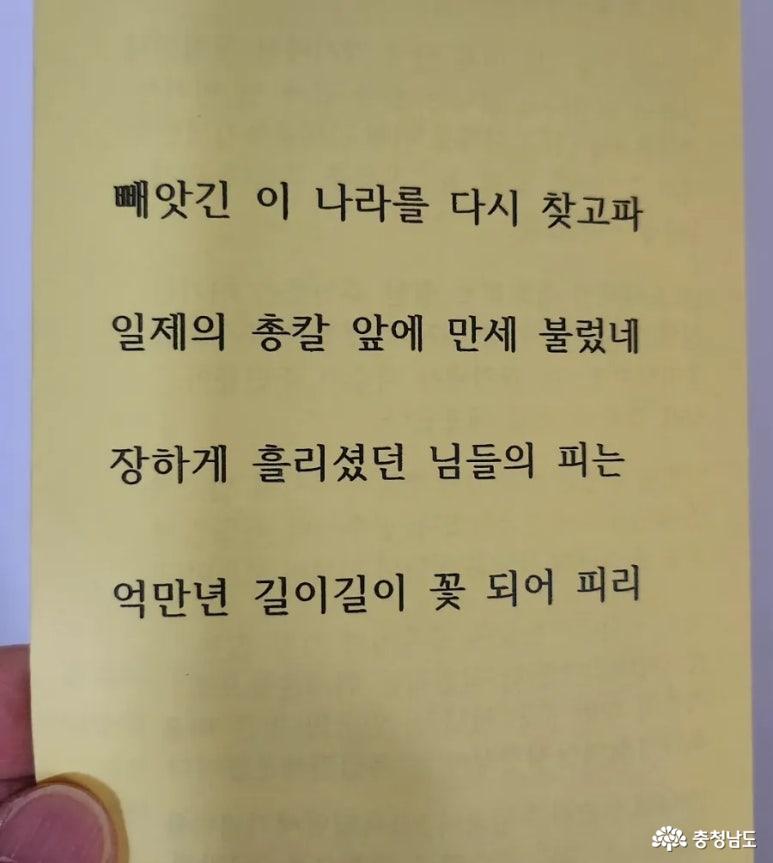 빼앗긴 이 나라를 다시 찾고파
일제의 총칼 앞에 만세 불렀네
장하게 흘리셨던 님들의 피는
억만년 길이길이 꽃 되어 피리
충청남도